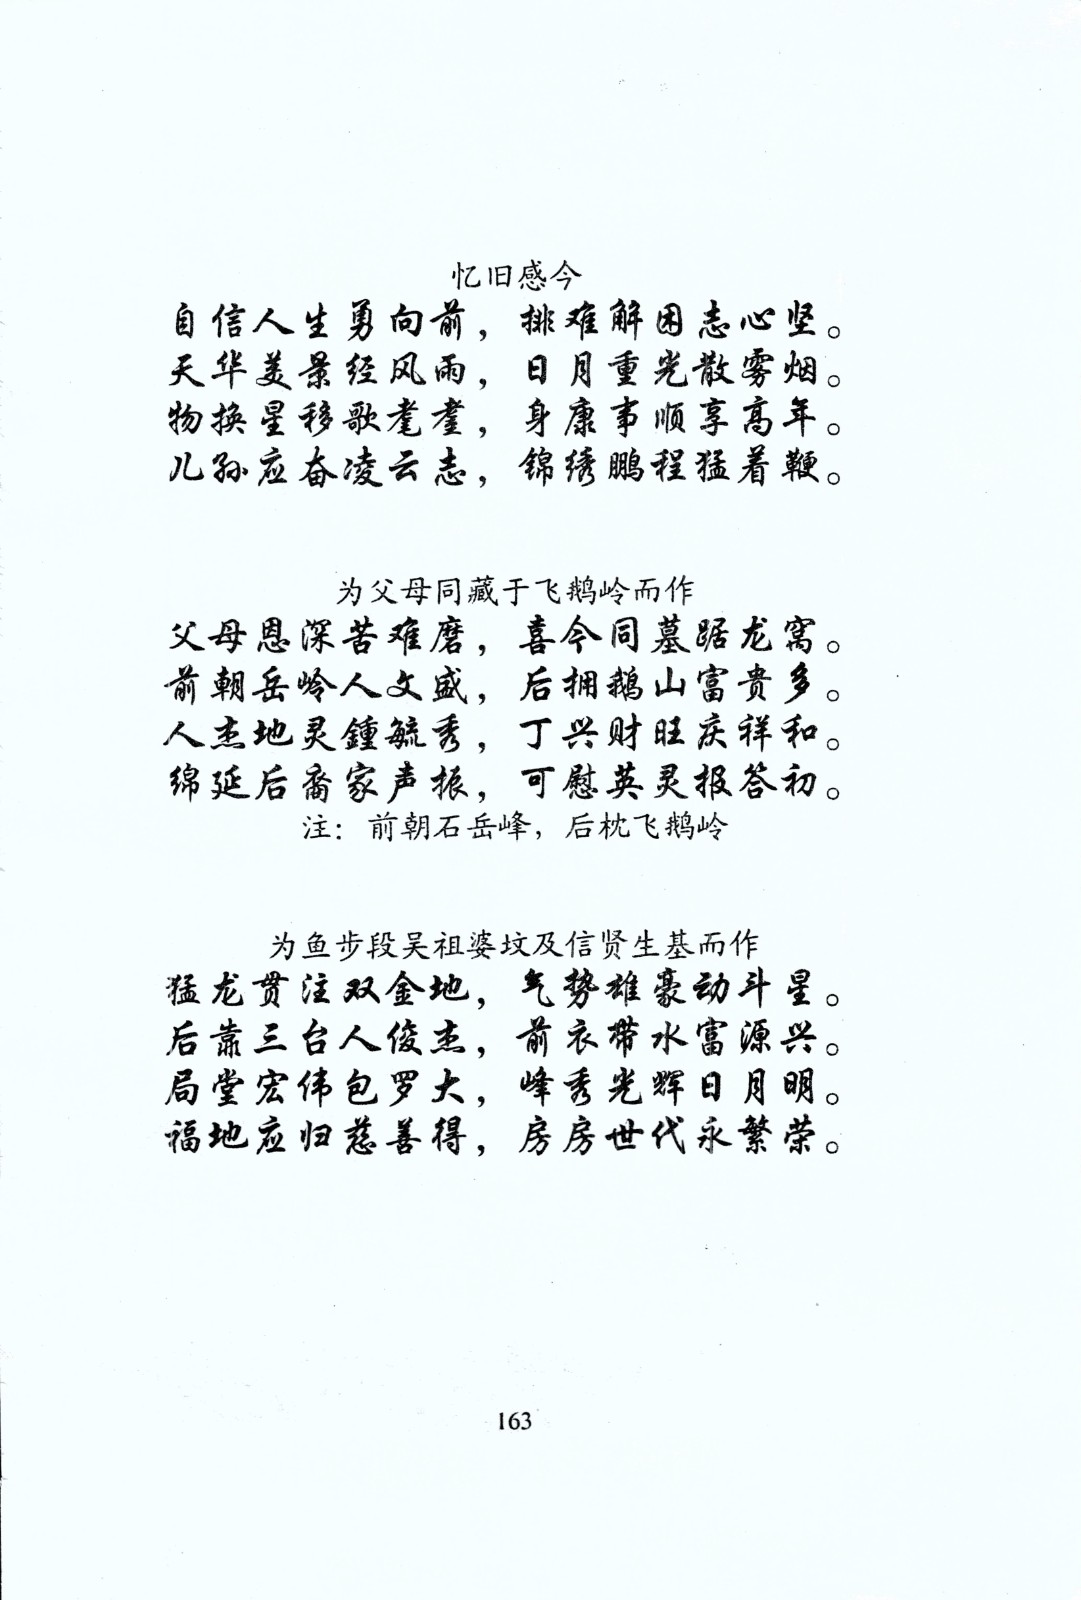 忆旧感今
自信人生勇向前，排难解困志心坚。
天华美景经风雨，日月重光散雾烟。
物换星移歌耄耋，身康事顺享高年。
儿孙应奋凌云志，锦绣鹏程猛着鞭。
为父母同藏于飞鹅岭而作
父母恩深苦难磨，喜今同墓踞龙窝。
前朝岳岭人文盛，后拥鹅山富贵多。
人杰地灵鍾毓秀，丁兴财旺庆祥和。
绵延后裔家声振，可慰英灵报答初。
注：前朝石岳峰，后枕飞鹅岭
为鱼步段吴祖婆坟及信贤生基而作
猛龙贯注双金地，气势雄豪动斗星。
后靠三台人俊杰，前衣带水富源兴。
局堂宏伟包罗大，峰秀光辉日月明。
福地应归慈善得，房房世代永繁荣。
163